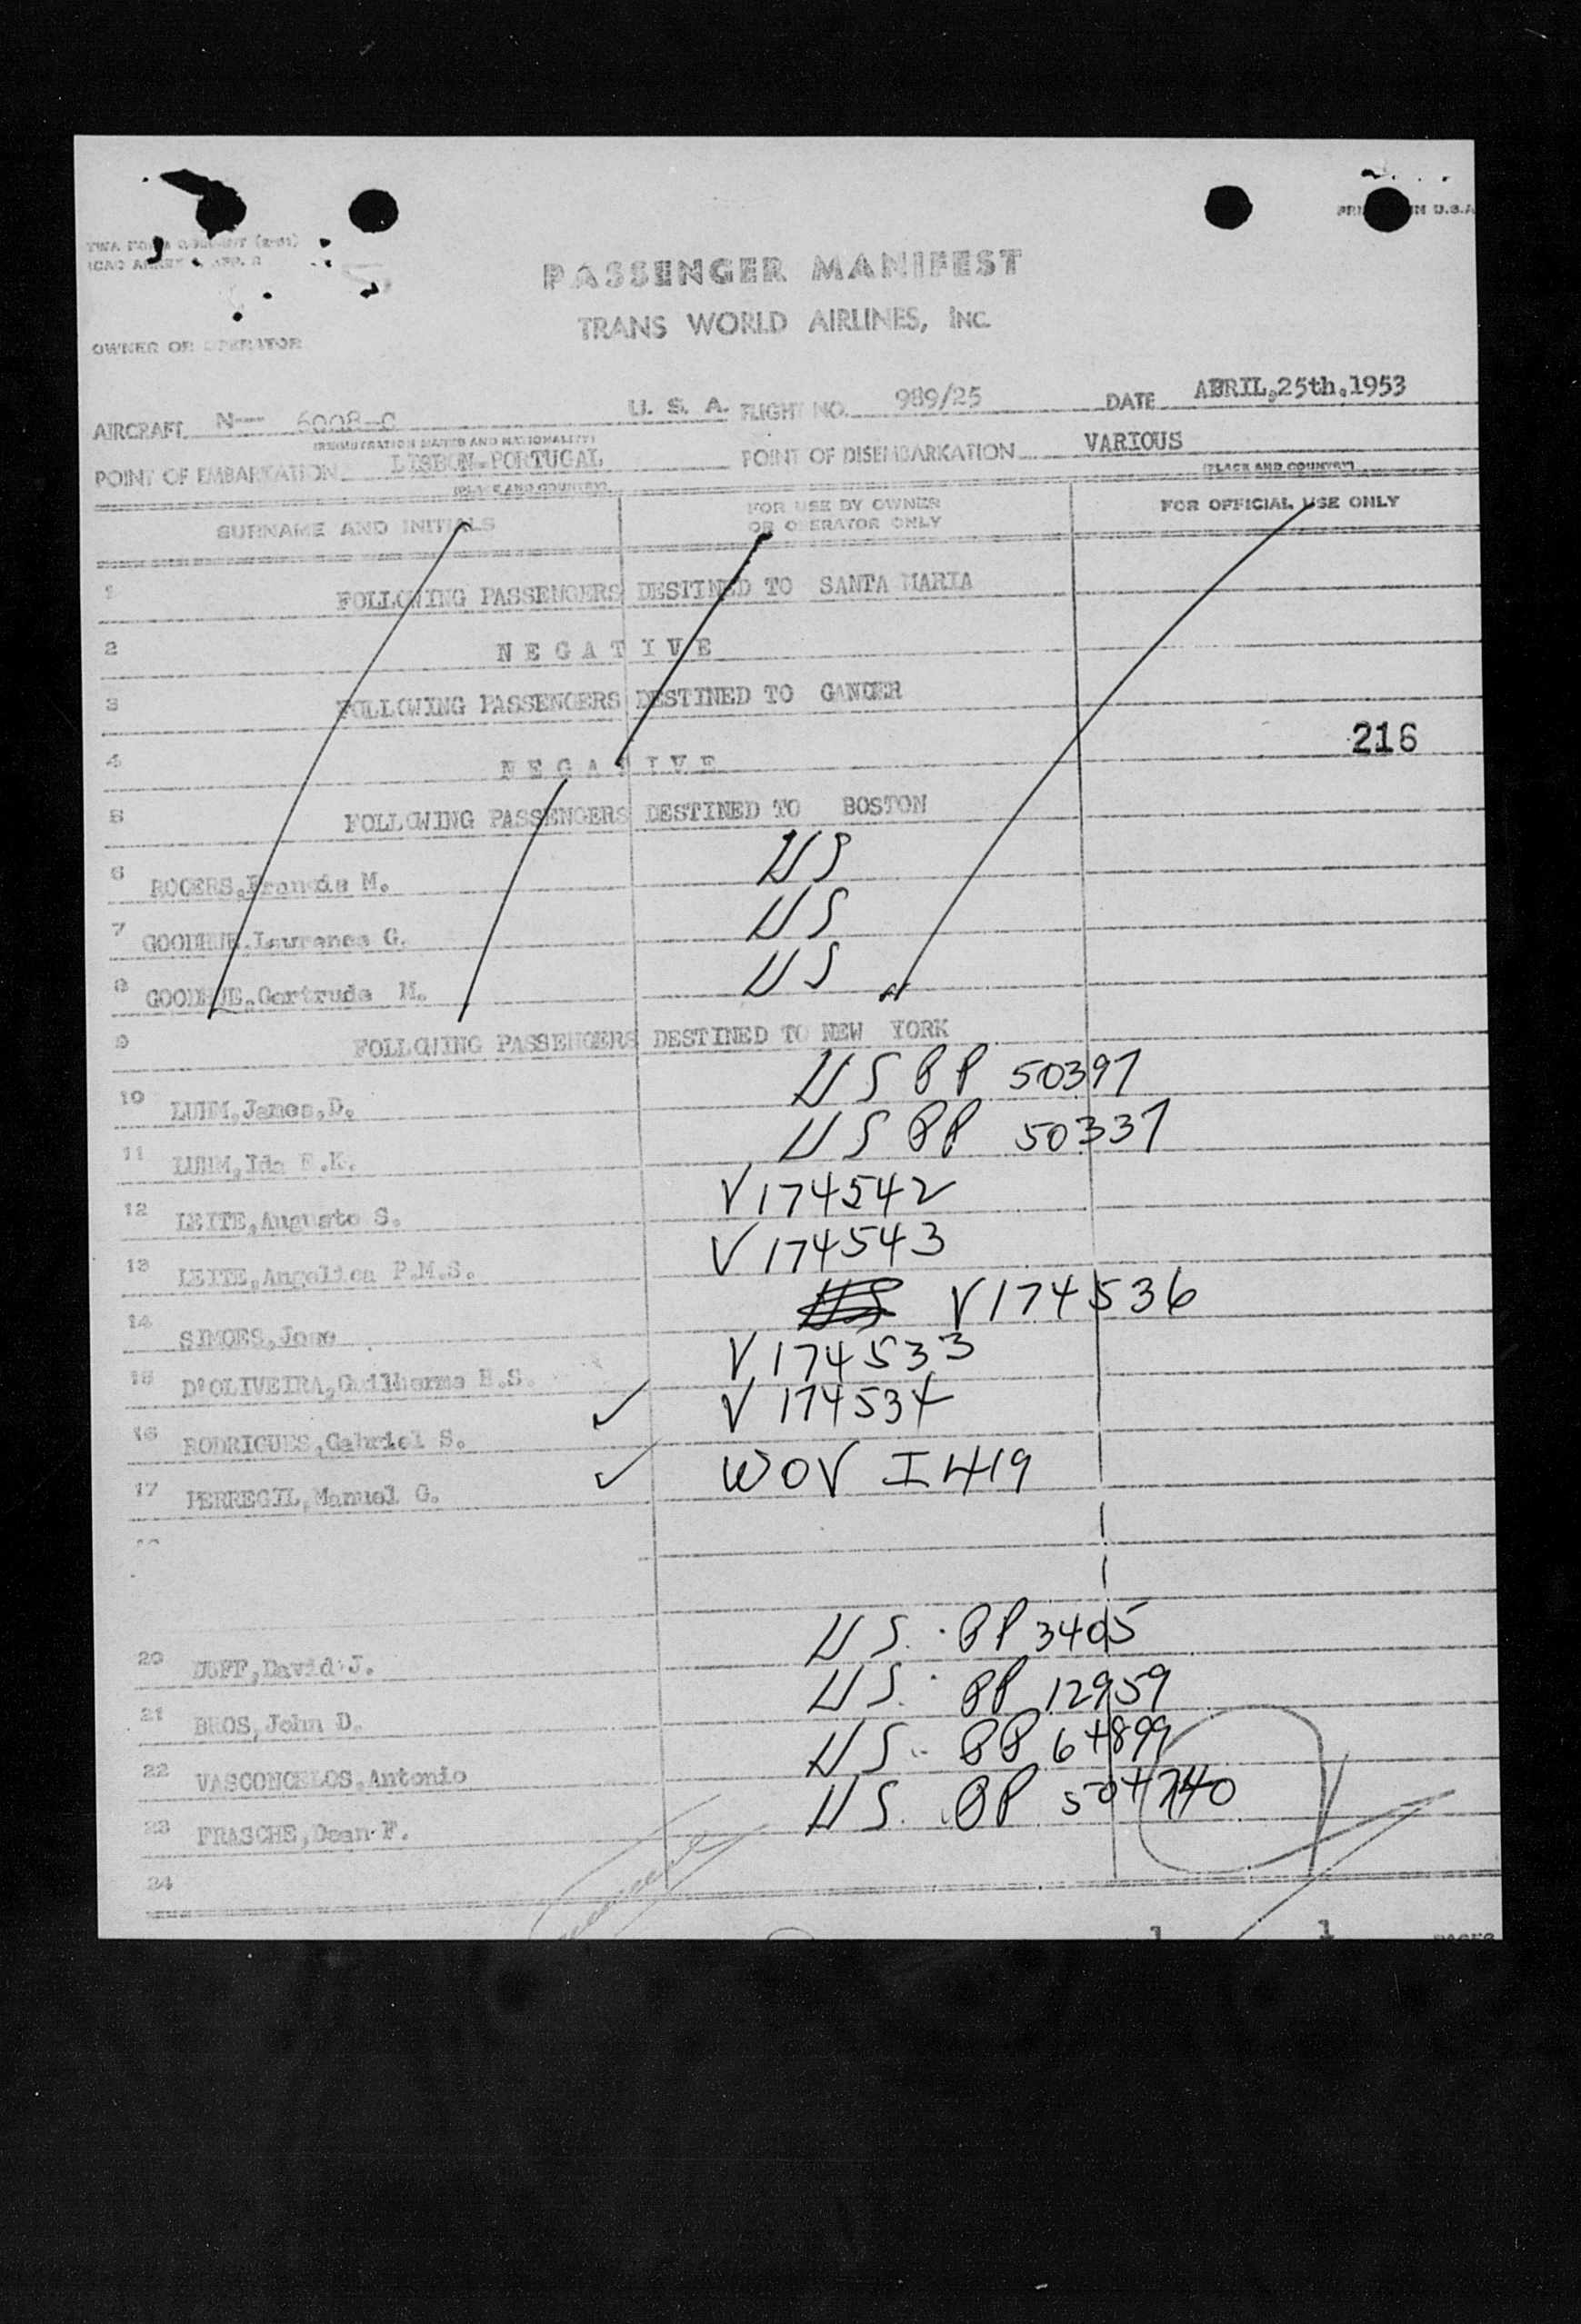 PRINTED IN U.S.A.
PASSENGER MANIFEST
TRANS WORLD AIRLINES, INC.
OWNER OR OPERATOR
AIRCRAFT N-- 6008-C U. S. A. FLIGHT NO. 989/25 DATE ABRIL,25th,1953
(REGISTRATION MARKS AND NATIONALITY)
POINT OF EMBARKATION LISBON-PORTUGAL POINT OF DISEMBARKATION VARIOUS
(PLACE AND COUNTRY) (PLACE AND COUNTRY)
SURNAME AND INITIALS FOR USE BY OWNER OR OPERATOR ONLY FOR OFFICIAL USE ONLY
1 FOLLOWING PASSENGERS DESTINED TO SANTA MARIA
2 N E G A T I V E
3 FOLLOWING PASSENGERS DESTINED TO GANDER
4 N E G A T I V E 216
5 FOLLOWING PASSENGERS DESTINED TO BOSTON
6 ROGERS,Francis M. US
7 GOODHUE,Lawrence G. US
8 GOODHUE,Gertrude M. US
9 FOLLOWING PASSENGERS DESTINED TO NEW YORK
10 LUHM,James,D. US PP 50397
11 LUHM,Ida E.K. US PP 50337
12 LEITE,Augusto S. V174542
13 LEITE,Angelica P.M.S. V174543
14 SIMOES,Jose US V174536
15 D'OLIVEIRA,Guilherme H.S. V174533
16 RODRIGUES,Gabriel S. ✓ V174534
17 PERREGIL,Manuel G. ✓ WOV I419
20 DUFF,David J. US. PP 3405
21 BROS,John D. US. PP 12959
22 VASCONCELOS,Antonio US. PP 64899
23 FRASCHE,Dean F. US. PP 504740
24
1 1 PAGES